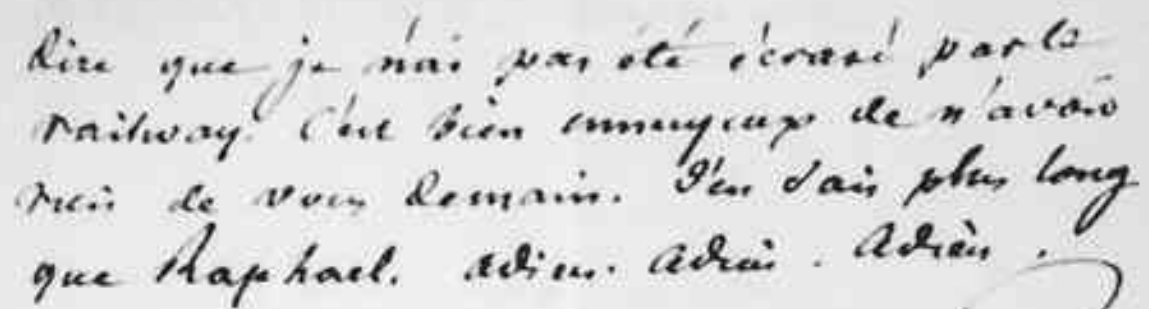 Dire que je n'ai pas été écrasé par le
railway. C'est bien ennuyeux de n'avoir
rien de vous demain. J'en sais plus long
que Raphael. Adieu. Adieu. Adieu.